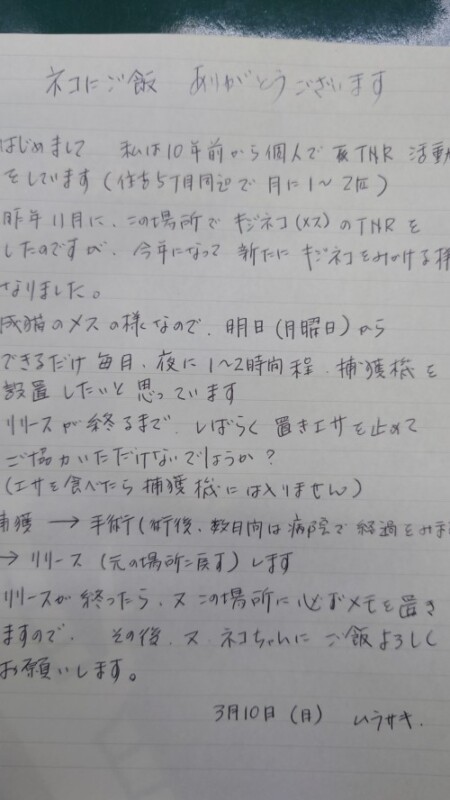 ネコにご飯 ありがとうございます
はじめまして 私は10年前から個人で TNR 活動
をしています(住吉5丁目周辺で 月に1〜2匹)
昨年11月に、この場所で キジネコ(メス)のTNRを
したのですが、今年になって 新たに キジネコをみかける様
なりました。
成猫のメスの様なので、明日(月曜日)から
できるだけ毎日、夜に1〜2時間程、捕獲機を
設置したいと思っています
リリースが終るまで、しばらく 置きエサを止めて
ご協力いただけないでしょうか?
(エサを食べたら捕獲機には入りません)
捕獲 → 手術(術後、数日間は病院で経過をみま
→ リリース (元の場所に戻す)します
リリースが終ったら、又 この場所に 必ずメモを置き
ますので、その後、又 ネコちゃんに ご飯よろしく
お願いします。
3月10日(日) ムラサキ.